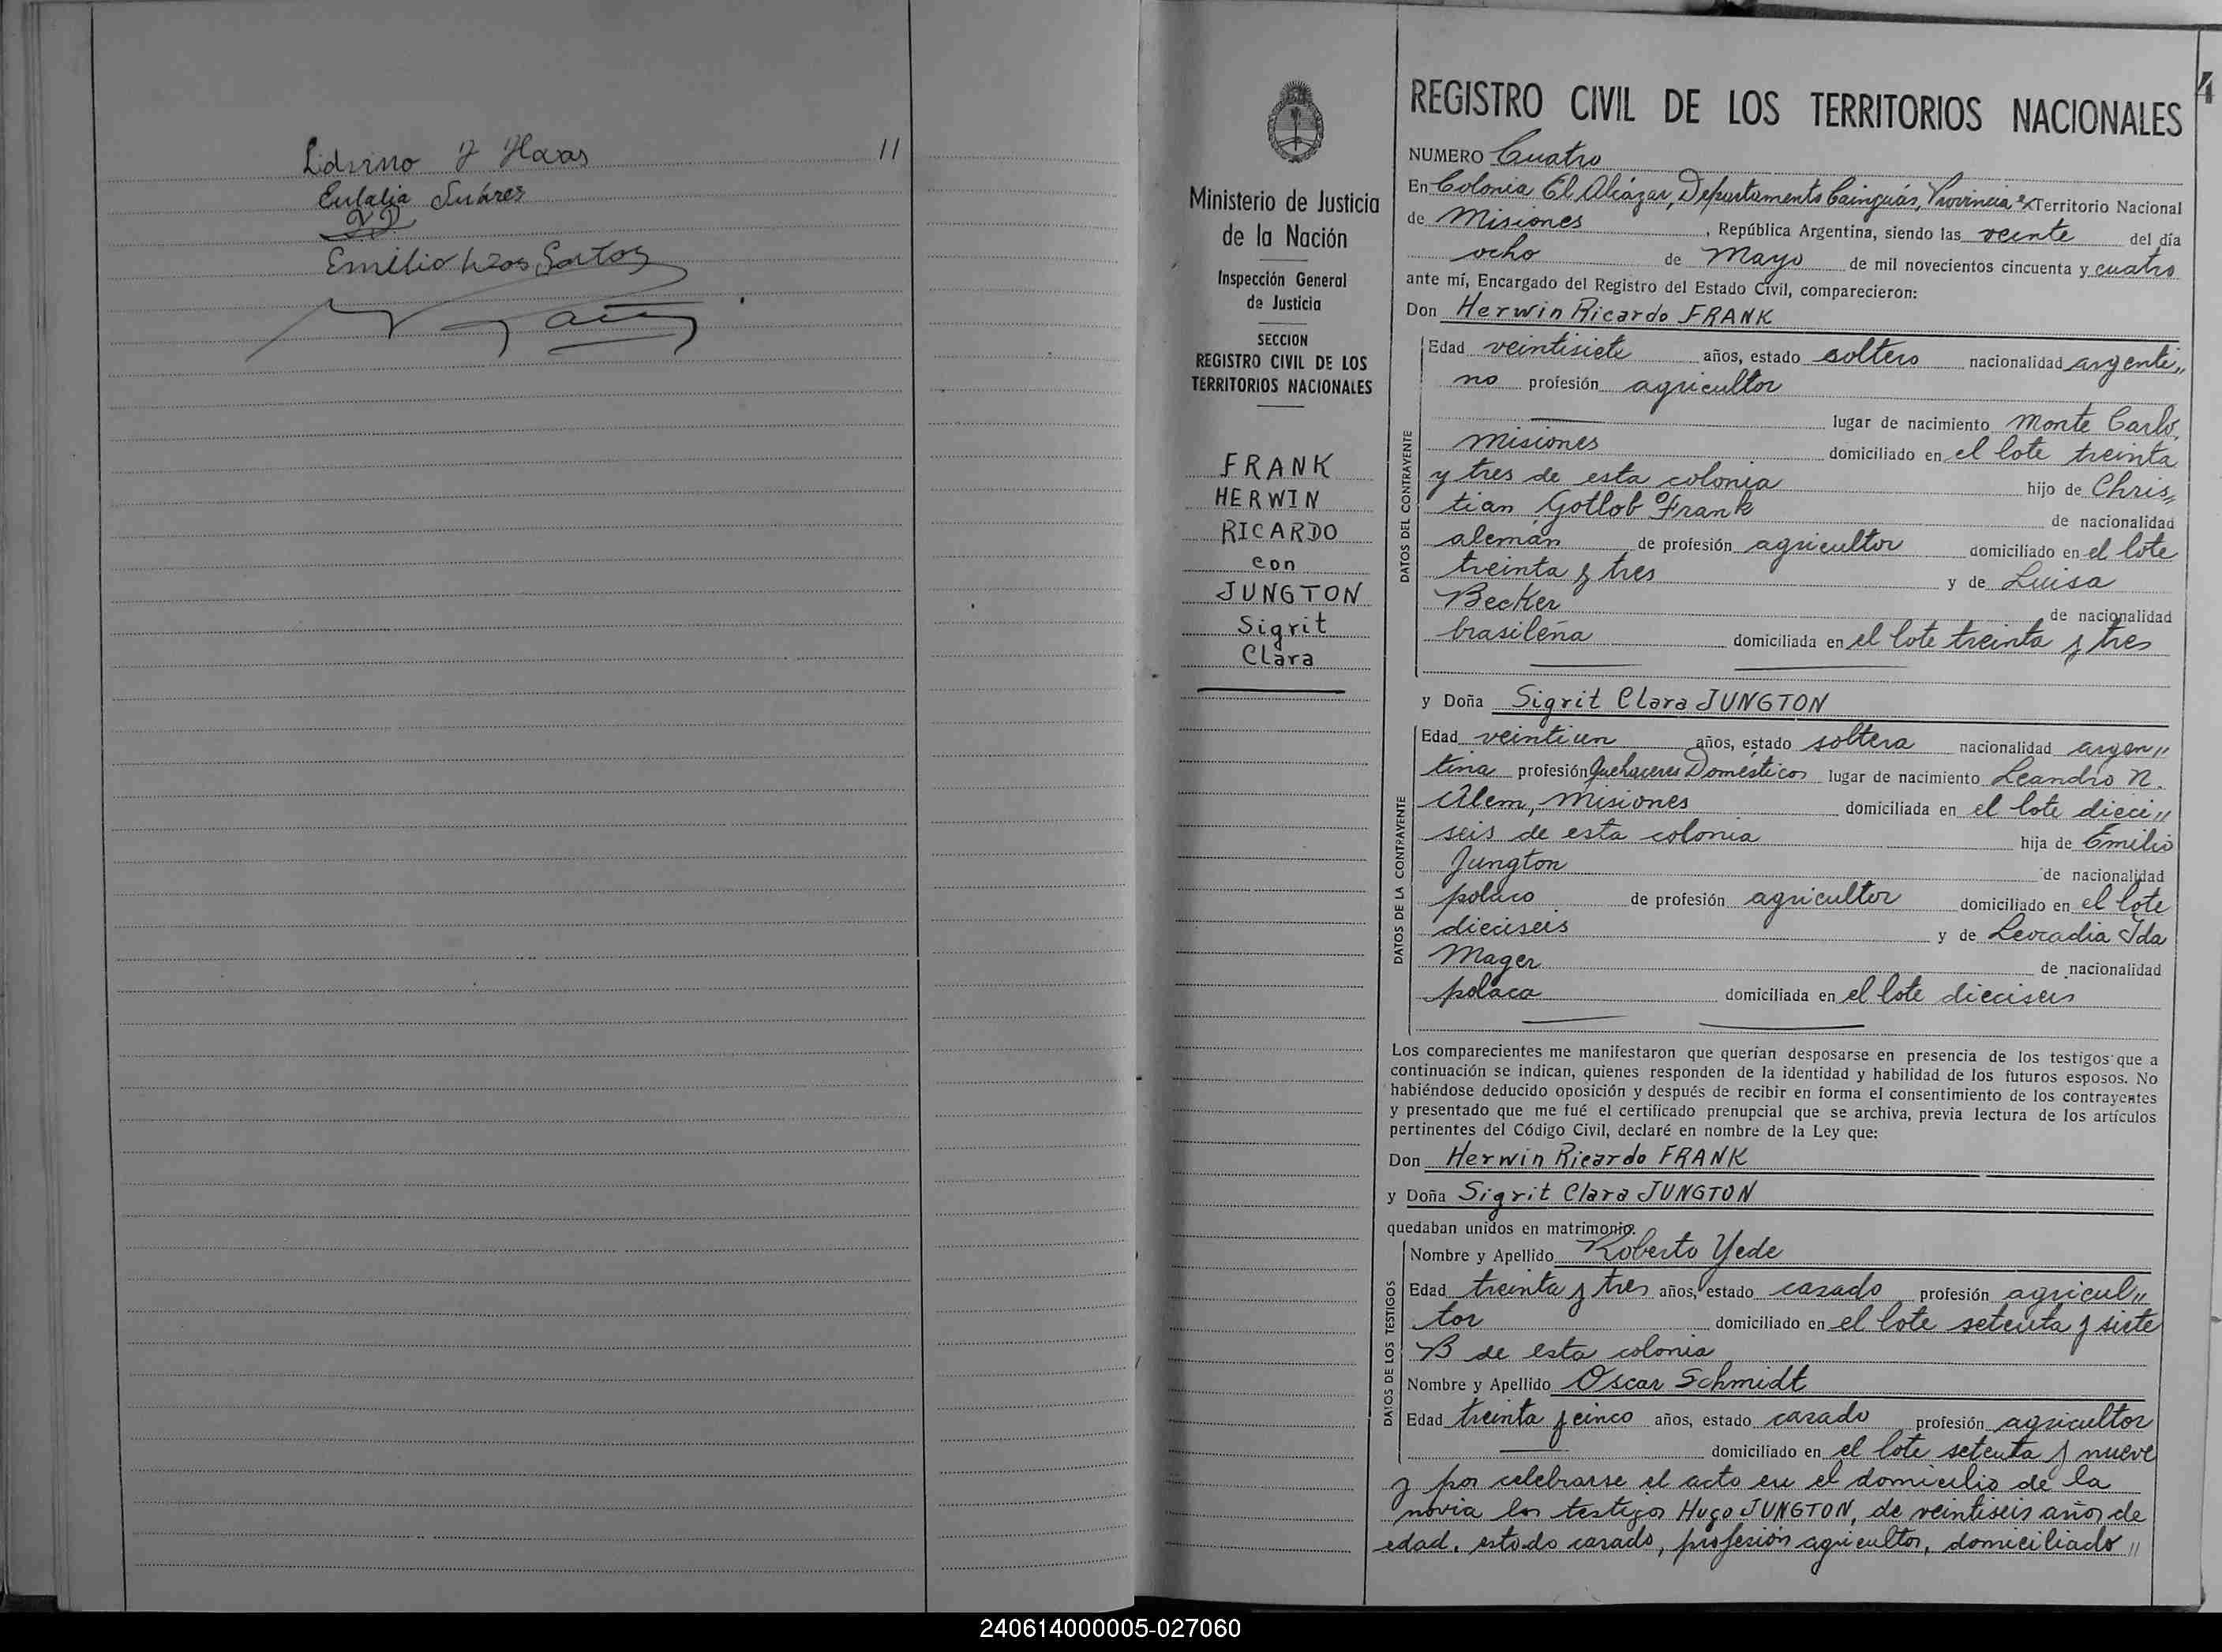 11
Eulalia Suáres
Emilio
4
REGISTRO CIVIL DE LOS TERRITORIOS NACIONALES
Ministerio de Justicia
de la Nación
Inspección General
de Justicia
SECCION
REGISTRO CIVIL DE LOS
TERRITORIOS NACIONALES
FRANK
HERWIN
RICARDO
con
JUNGTON
Sigrit
Clara
NUMERO Cuatro
En Colonia El Alcázar, Departamento Cainguás, Provincia Territorio Nacional
de Misiones, República Argentina, siendo las veinte del día
ocho de Mayo de mil novecientos cincuenta y cuatro
ante mí, Encargado del Registro del Estado Civil, comparecieron:
Don Herwin Ricardo FRANK
DATOS DEL CONTRAYENTE
Edad veintisiete años, estado soltero nacionalidad argenti,,
no profesión agricultor
lugar de nacimiento Monte Carlo,
Misiones domiciliado en el lote treinta
y tres de esta colonia hijo de Chris,,
tian Gotlob Frank de nacionalidad
alemán de profesión agricultor domiciliado en el lote
treinta y tres y de Luisa
Becker de nacionalidad
brasileña domiciliada en el lote treinta y tres
y Doña Sigrit Clara JUNGTON
DATOS DE LA CONTRAYENTE
Edad veintiun años, estado soltera nacionalidad argen,,
tina profesión Quehaceres Domésticos lugar de nacimiento Leandro N.
Alem, Misiones domiciliada en el lote dieci,,
seis de esta colonia hija de Emilio
Jungton de nacionalidad
polaco de profesión agricultor domiciliado en el lote
dieciseis y de Leocadia Ida
Mager de nacionalidad
polaca domiciliada en el lote dieciseis
Los comparecientes me manifestaron que querían desposarse en presencia de los testigos que a
continuación se indican, quienes responden de la identidad y habilidad de los futuros esposos. No
habiéndose deducido oposición y después de recibir en forma el consentimiento de los contrayentes
y presentado que me fué el certificado prenupcial que se archiva, previa lectura de los artículos
pertinentes del Código Civil, declaré en nombre de la Ley que:
Don Herwin Ricardo FRANK
y Doña Sigrit Clara JUNGTON
quedaban unidos en matrimonio.
DATOS DE LOS TESTIGOS
Nombre y Apellido Roberto Yede
Edad treinta y tres años, estado casado profesión agricul,,
tor domiciliado en el lote setenta y siete
B de esta colonia
Nombre y Apellido Oscar Schmidt
Edad treinta y cinco años, estado casado profesión agricultor
domiciliado en el lote setenta y nueve
y por celebrarse el acto en el domicilio de la
novia los testigos Hugo JUNGTON, de veintiseis años de
edad, estado casado, profesión agricultor, domiciliado,,
240614000005-027060